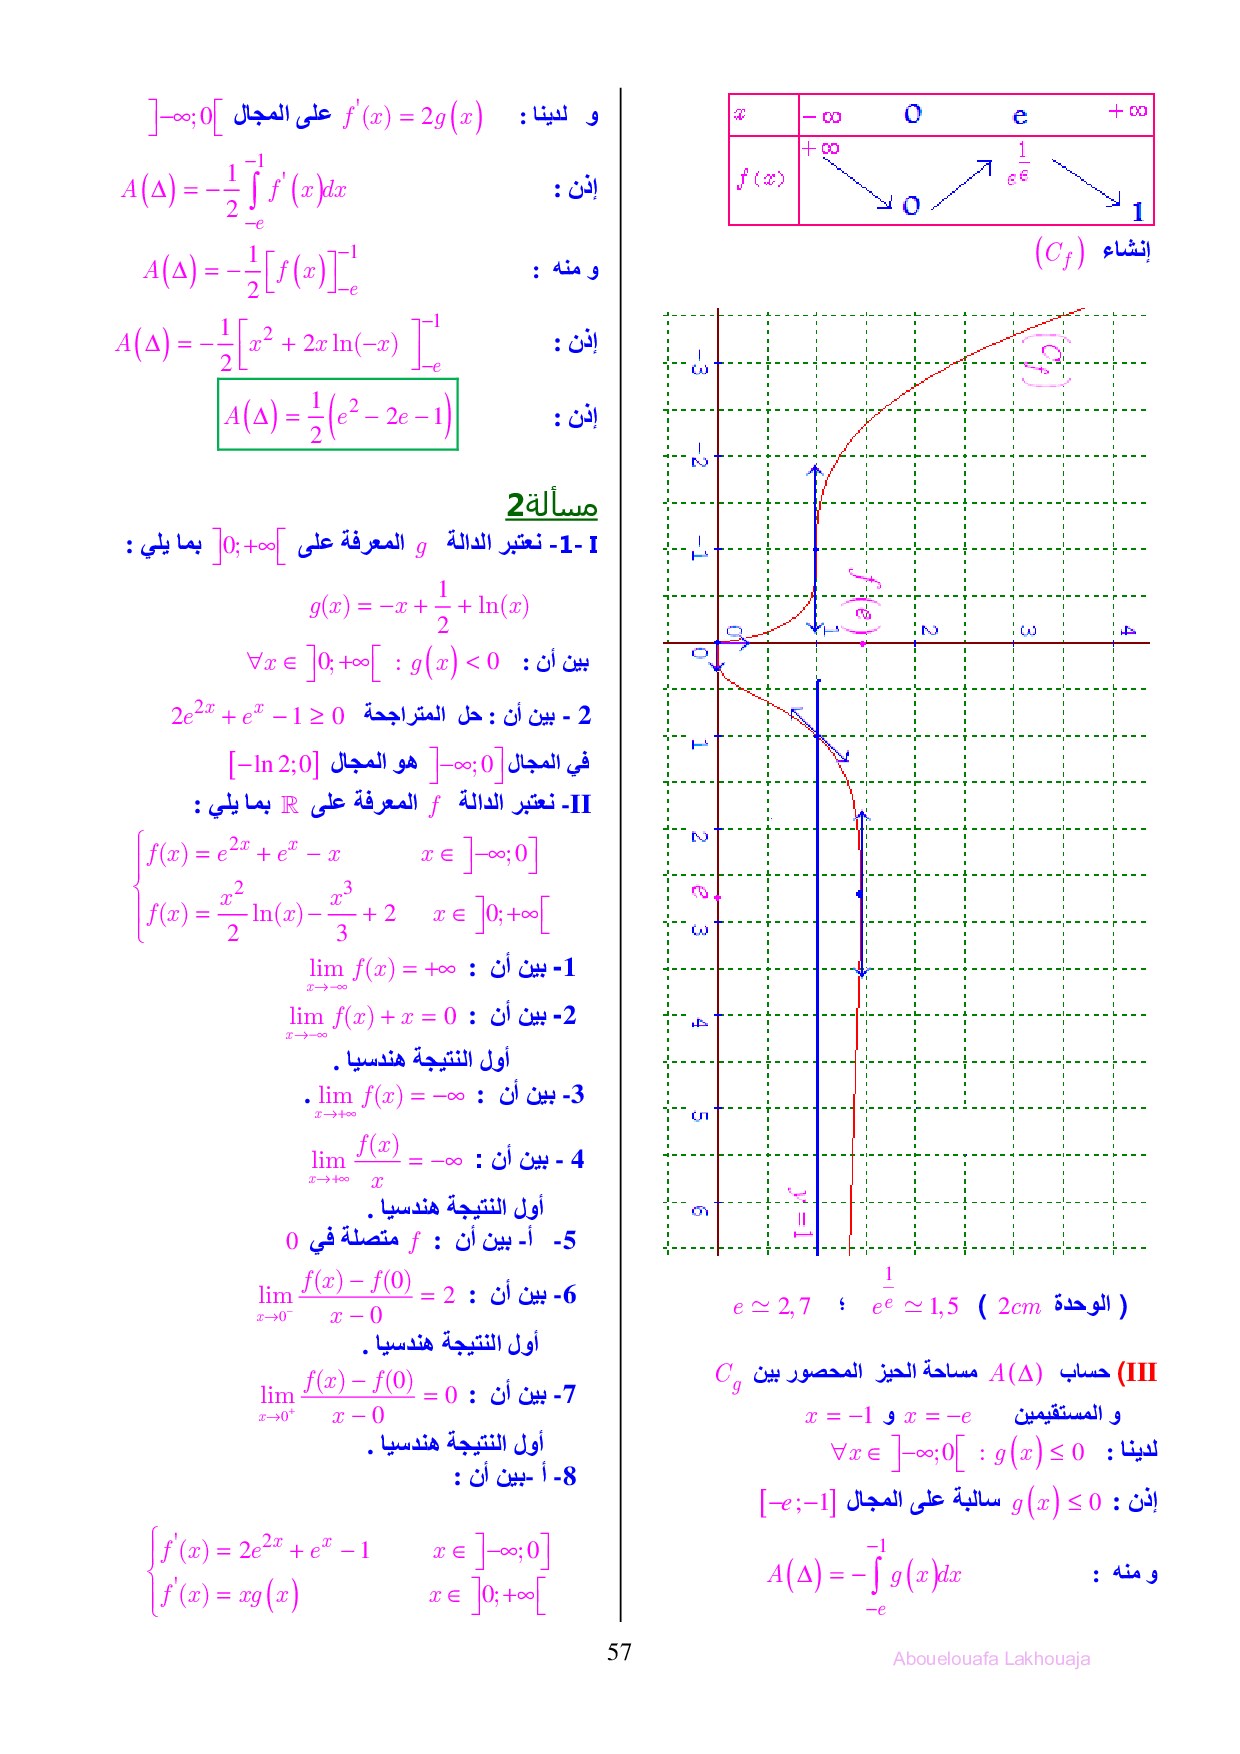 x −∞ 0 e +∞
f(x) +∞ 0 e^{1/e} 1
إنشاء (C_f)
(C_f)
-3
-2
-1
0 1 2 3 4
f(e)
0
1
2
e
3
4
5
6
y=1
( الوحدة 2cm ) e^{1/e} ≃ 1,5 ؛ e ≃ 2,7
III) حساب A(Δ) مساحة الحيز المحصور بين C_g
و المستقيمين x = −e و x = −1
لدينا : ∀x ∈ ]−∞;0[ : g(x) ≤ 0
إذن : g(x) ≤ 0 سالبة على المجال [−e;−1]
و منه : A(Δ) = −∫_{−e}^{−1} g(x)dx
و لدينا : f'(x) = 2g(x) على المجال ]−∞;0[
إذن : A(Δ) = −\frac{1}{2}∫_{−e}^{−1} f'(x)dx
و منه : A(Δ) = −\frac{1}{2}[f(x)]_{−e}^{−1}
إذن : A(Δ) = −\frac{1}{2}[x² + 2x ln(−x)]_{−e}^{−1}
إذن : A(Δ) = \frac{1}{2}(e² − 2e − 1)
مسألة2
I -1- نعتبر الدالة g المعرفة على ]0;+∞[ بما يلي :
g(x) = −x + \frac{1}{2} + ln(x)
بين أن : ∀x ∈ ]0;+∞[ : g(x) < 0
2 - بين أن : حل المتراجحة 2e^{2x} + e^x − 1 ≥ 0
في المجال ]−∞;0] هو المجال [−ln 2;0]
II- نعتبر الدالة f المعرفة على ℝ بما يلي :
f(x) = e^{2x} + e^x − x x ∈ ]−∞;0]
f(x) = \frac{x²}{2} ln(x) − \frac{x³}{3} + 2 x ∈ ]0;+∞[
1- بين أن : lim_{x→−∞} f(x) = +∞
2- بين أن : lim_{x→−∞} f(x) + x = 0
أول النتيجة هندسيا .
3- بين أن : lim_{x→+∞} f(x) = −∞ .
4 - بين أن : lim_{x→+∞} \frac{f(x)}{x} = −∞
أول النتيجة هندسيا .
5- أ- بين أن : f متصلة في 0
6- بين أن : lim_{x→0⁻} \frac{f(x) − f(0)}{x − 0} = 2
أول النتيجة هندسيا .
7- بين أن : lim_{x→0⁺} \frac{f(x) − f(0)}{x − 0} = 0
أول النتيجة هندسيا .
8- أ -بين أن :
f'(x) = 2e^{2x} + e^x − 1 x ∈ ]−∞;0]
f'(x) = xg(x) x ∈ ]0;+∞[
57
Abouelouafa Lakhouaja